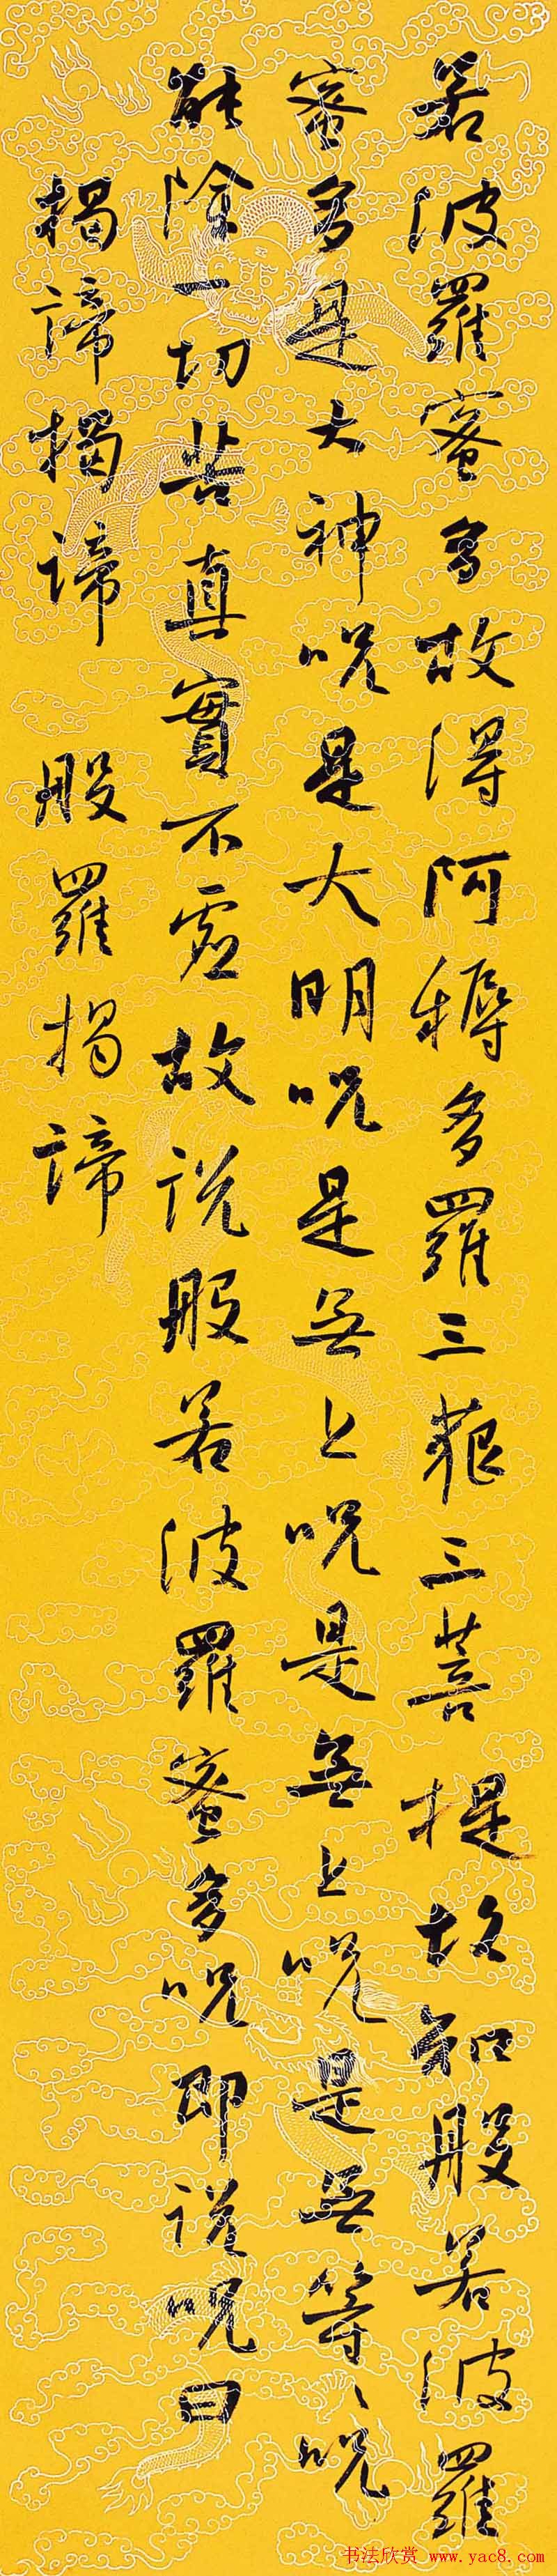 若波羅蜜多故得阿耨多羅三藐三菩提故知般若波羅
蜜多是大神呪是大明呪是無上呪是無上呪是無等々呪
能除一切苦真實不虛故説般若波羅蜜多呪即説呪曰
揭諦揭諦 般羅揭諦
书法欣赏 www.yac8.com